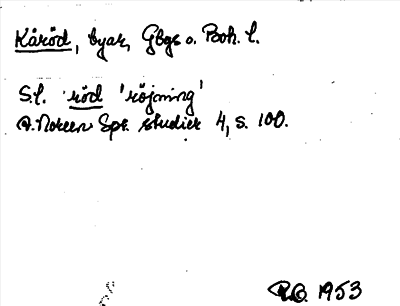 Kåröd, byar, Gbgs o. Boh. l.
S.l. röd 'röjning'
A. Noreen Spr. studier 4, s. 100.
R.O. 1953